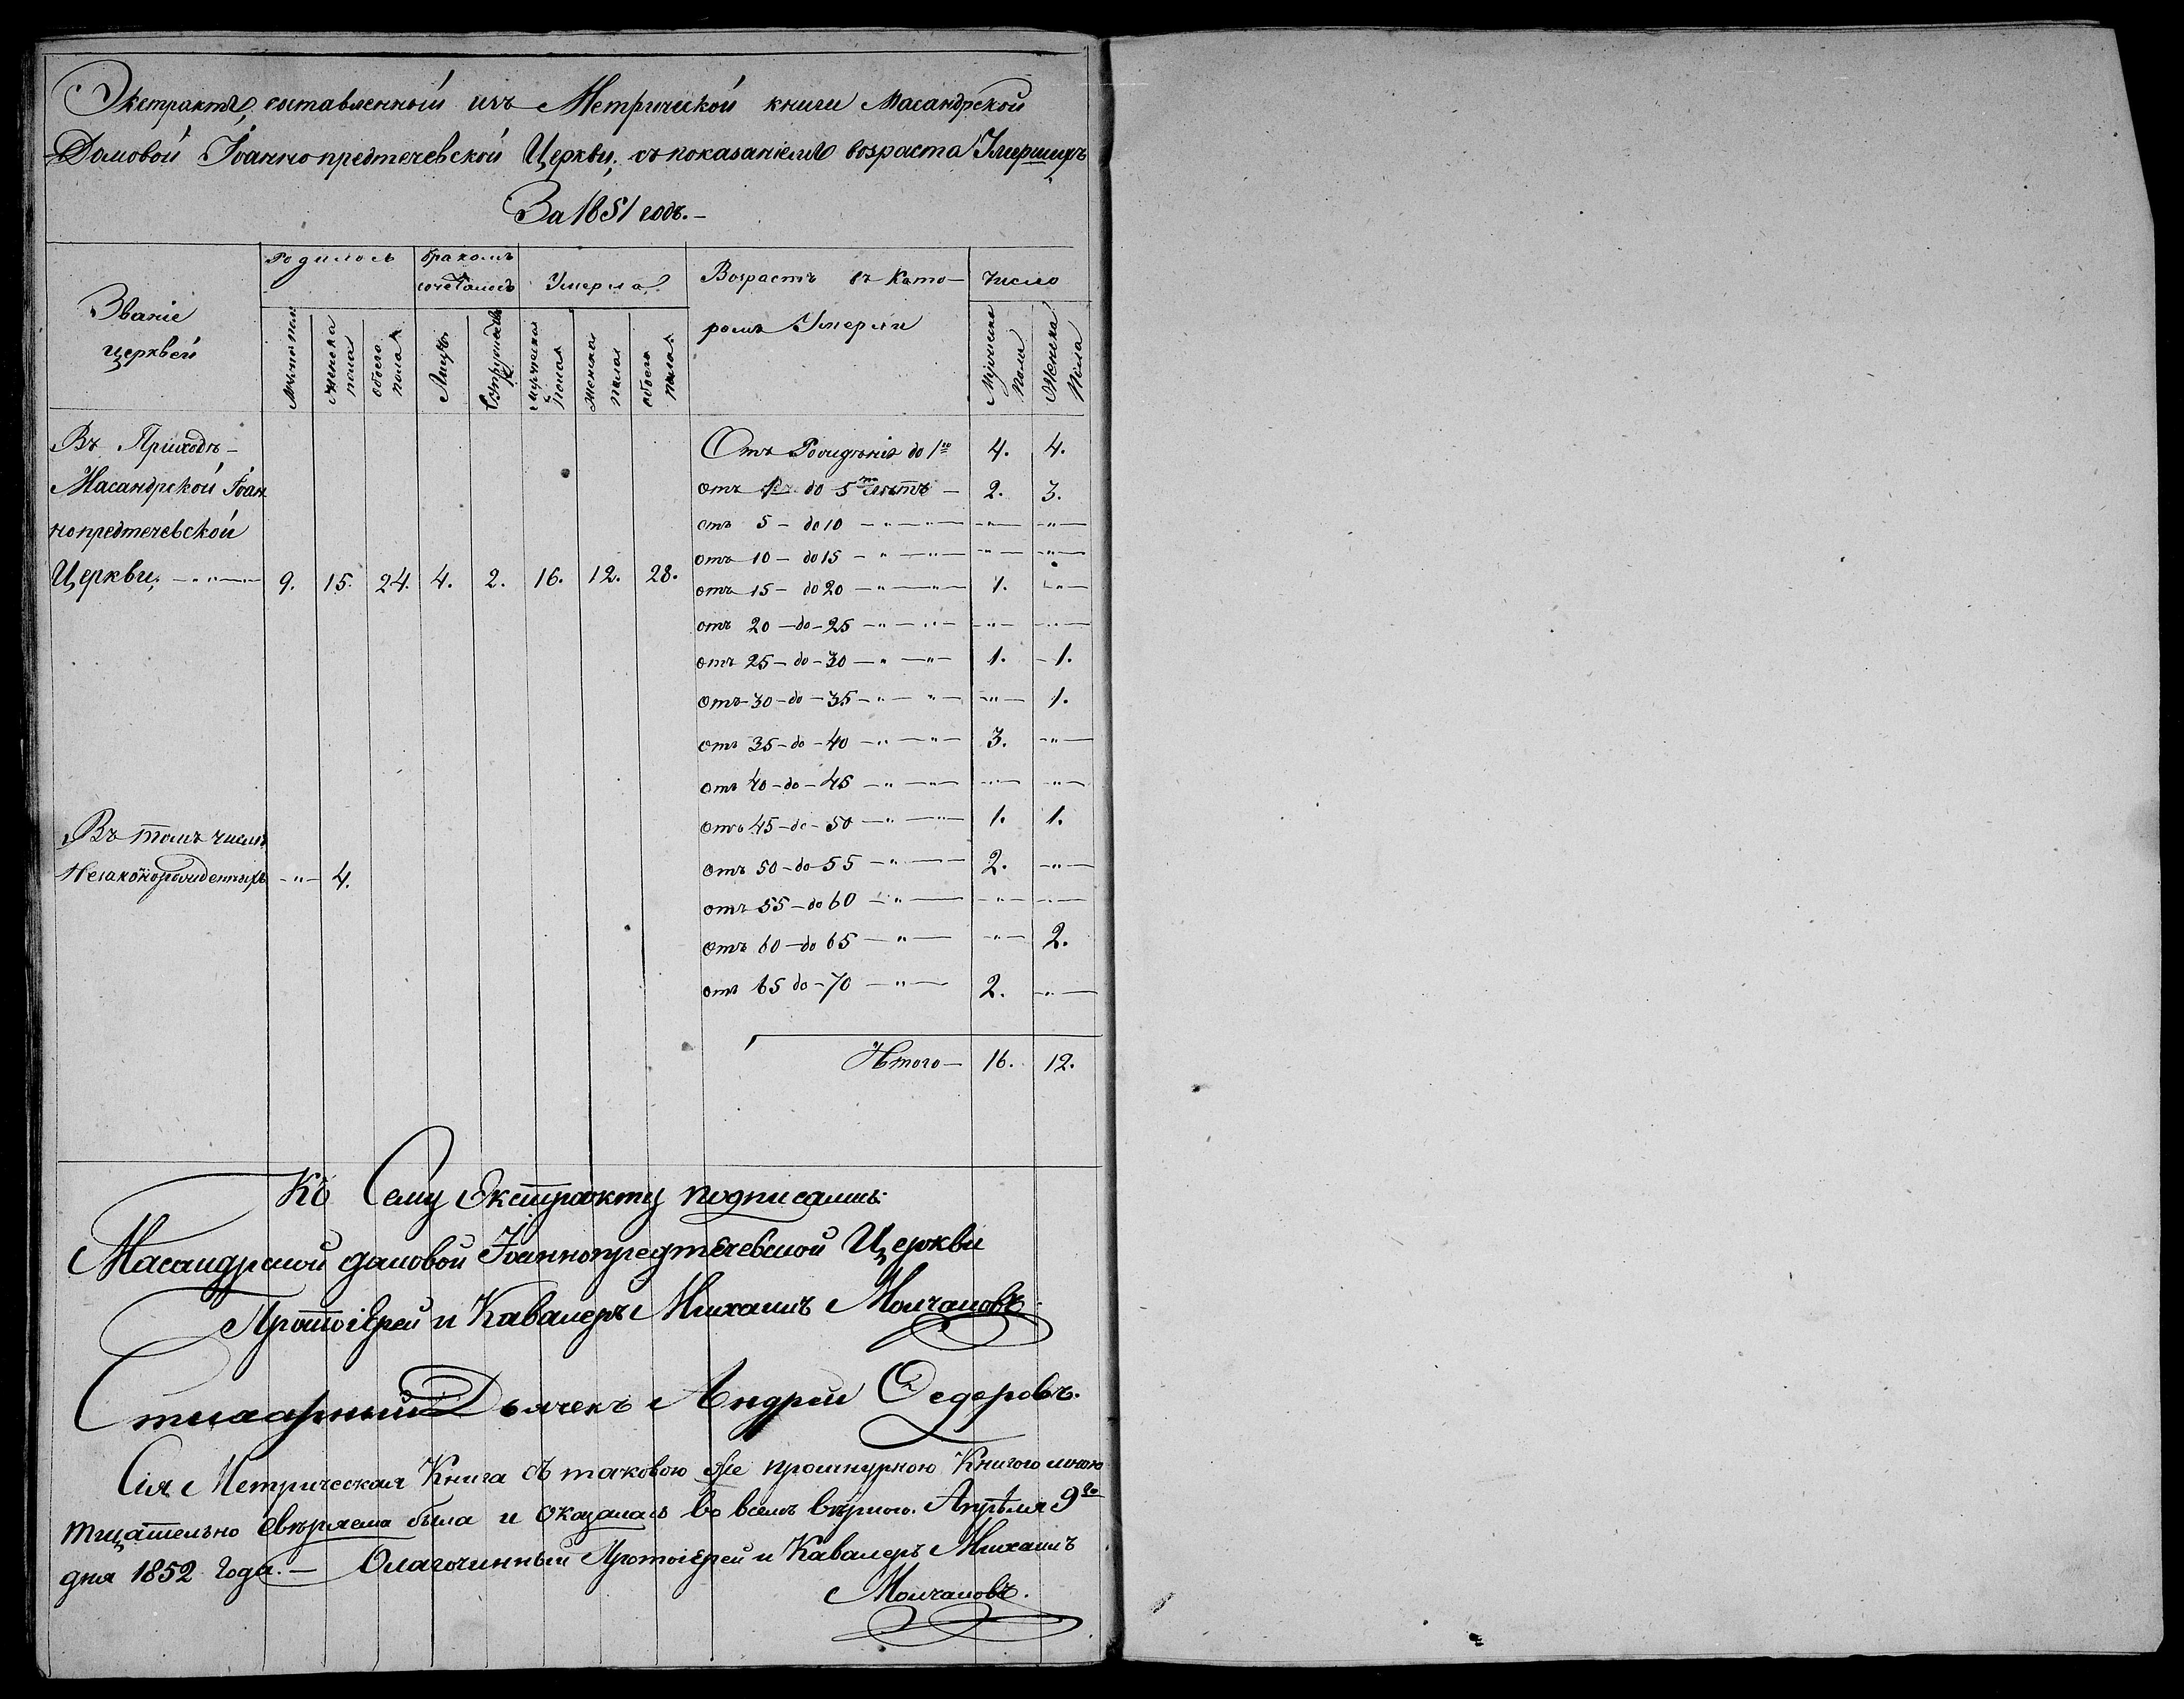 Экстрактъ, составленный изъ Метрической книги Масандрской
Домовой Іоаннопредтечевской Церкви, съ показаніемъ возраста Умершихъ
За 1851 годъ.—
Званіе церквей
Родилось
бракомъ сочеталось
Умерло
Возрастъ въ Кото-
ромъ Умерли
Число
Мужеска пола
Женска пола
обоего пола
Лицъ
Супружествъ
Мужеска пола
Женска пола
обоего пола
Мужеска Пола
Женска Пола
Въ Приходѣ —
Масандрской Іоан
нопредтечевской
Церкви, — „ — 9. 15. 24. 4. 2. 16. 12. 28.
Въ томъ числѣ
Незаконорожденныхъ — „ — 4.
Отъ Рожденія до 1го 4. 4.
отъ 1 до 5ти лѣтъ — 2. 3.
отъ 5 — до 10 — „ — „ — — „ — — „ —
отъ 10 — до 15 — „ — „ — — „ — — „ —
отъ 15 — до 20 — „ — „ — 1. — „ —
отъ 20 — до — 25 — „ — „ — — „ — — „ —
отъ 25 — до — 30 — „ — „ — 1. — 1.
отъ 30 — до — 35 — „ — „ — — „ — 1.
отъ 35 — до — 40 — „ — „ — 3. — „ —
отъ 40 — до — 45 — „ — „ — — „ — — „ —
отъ 45 — до — 50 — „ — „ — 1. 1.
отъ 50 — до 55 — „ — 2. — „ —
отъ 55 — до 60 — „ — — „ — — „ —
отъ 60 — до 65 — „ — — „ — 2.
отъ 65 до — 70 — „ — 2. — „ —
Итого — 16. 12.
Къ Сему Экстракту подписались:
Масандрской домовой Іоаннопредтечевской Церкви
Протоіерей и Кавалеръ Михаилъ Молчановъ
Стихарный Дьячекъ Андрей Федоровъ.
Сія Метрическая Книга съ таковою же прошнурною Книгою мною
тщательно свѣряема была и оказалась во всемъ вѣрною. Апрѣля 9го
дня 1852 года. — Благочинный Протоіерей и Кавалеръ Михаилъ
Молчановъ.